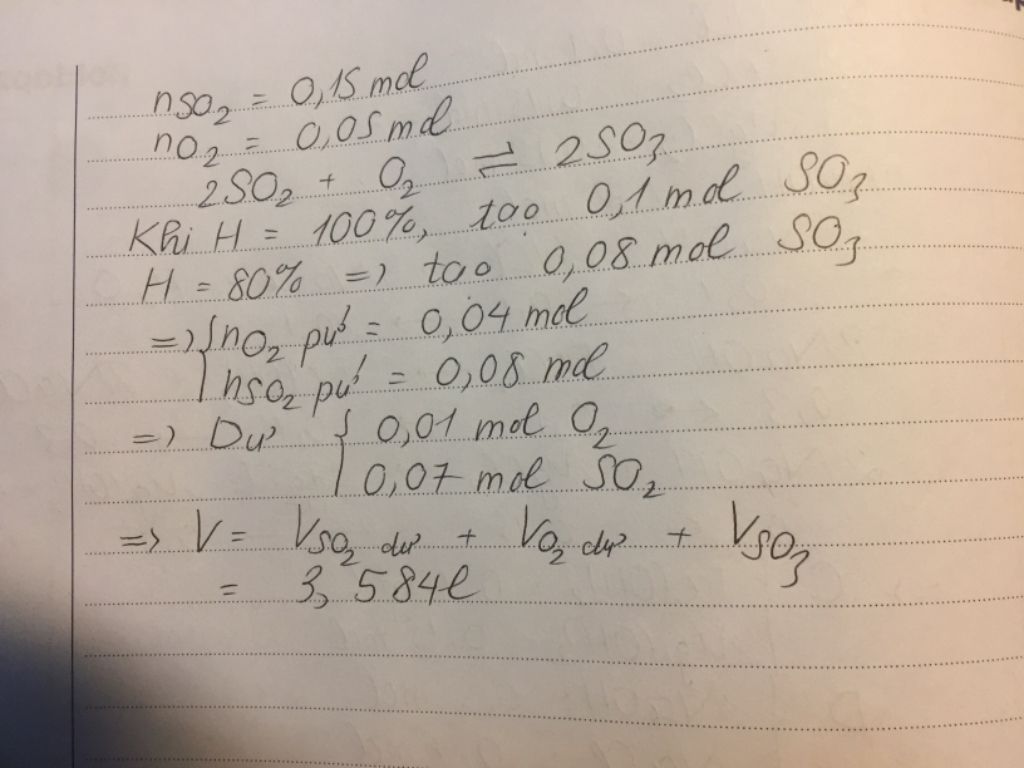 nSO₂ = 0,15 mol
nO₂ = 0,05 mol
2SO₂ + O₂ ⇌ 2SO₃
Khi H = 100%, tạo 0,1 mol SO₃
H = 80% => tạo 0,08 mol SO₃
=> { nO₂ pư = 0,04 mol
nSO₂ pư = 0,08 mol
=> Dư { 0,01 mol O₂
0,07 mol SO₂
=> V = VSO₂ dư + VO₂ dư + VSO₃
= 3,584l